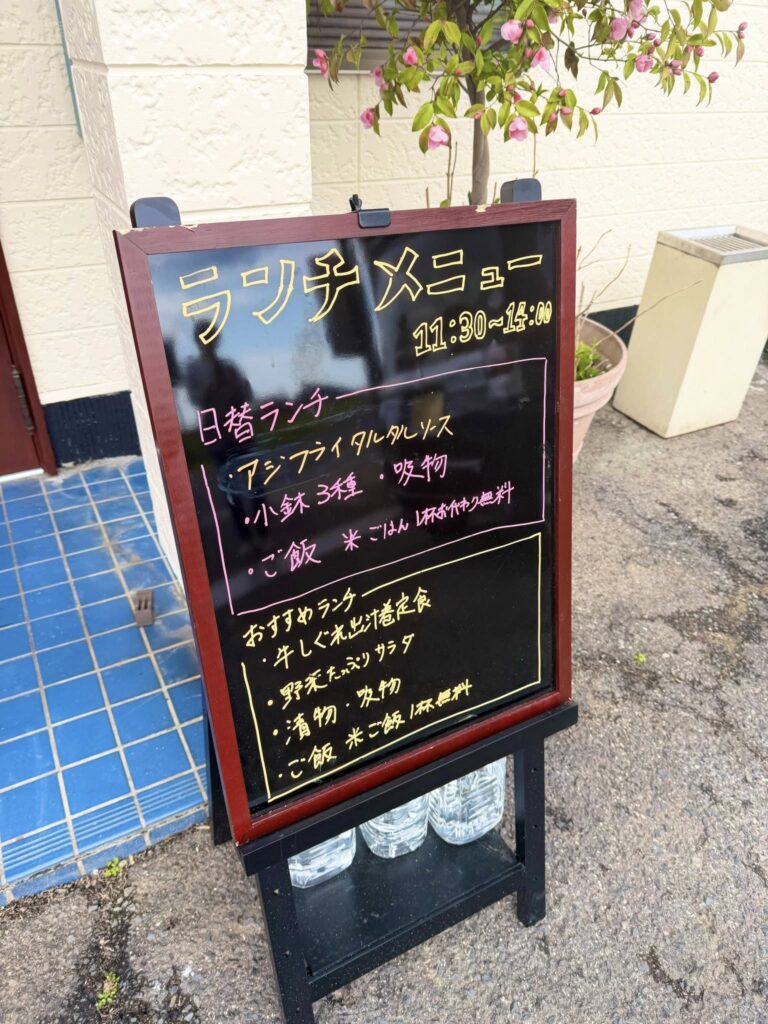 ランチメニュー
11:30~14:00
日替ランチ
・アジフライ タルタルソース
・小鉢 3種 ・吸物
・ご飯 米ごはん 1杯おかわり無料
おすすめランチ
・牛しぐれ出汁巻定食
・野菜たっぷりサラダ
・漬物・吸物
・ご飯 米ご飯 1杯無料